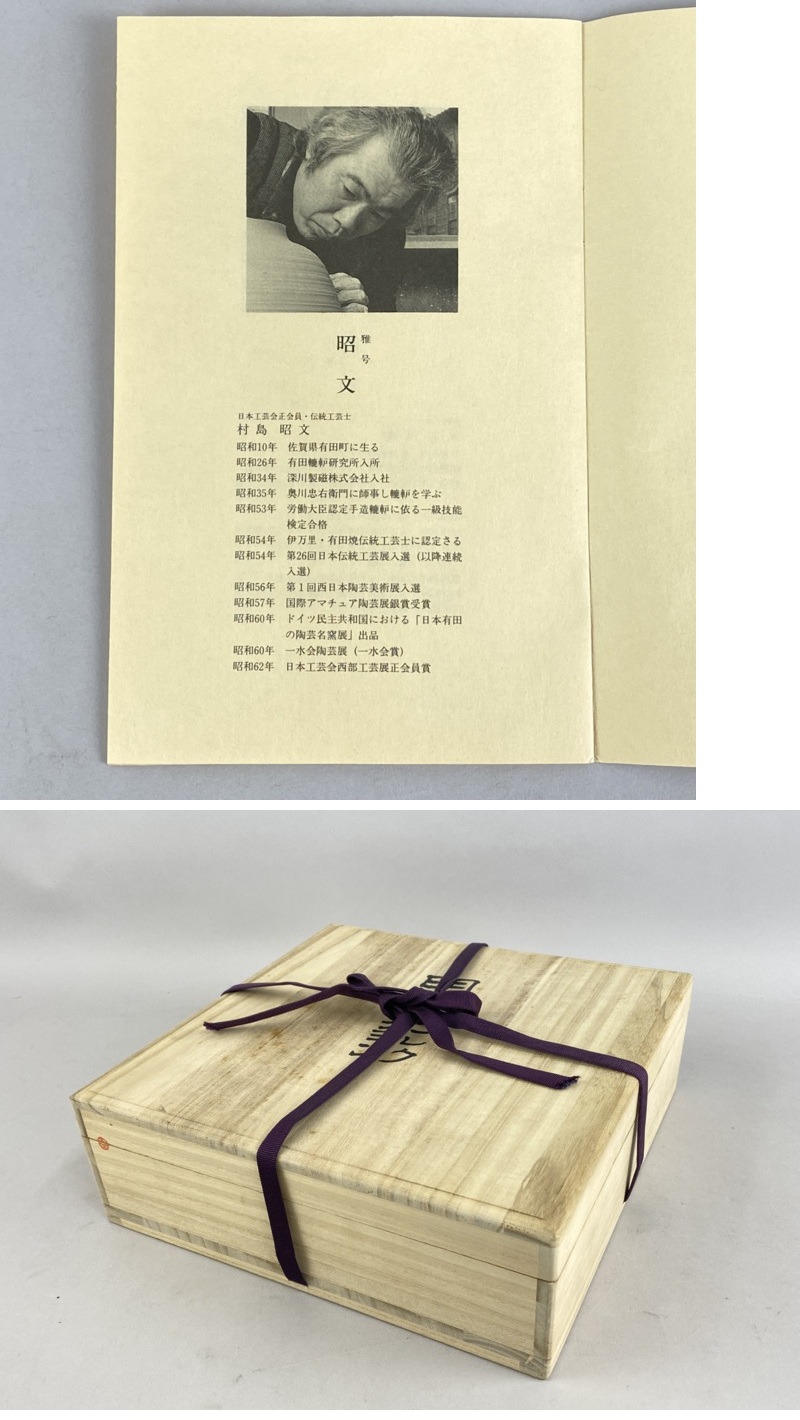 雅号
昭文
日本工芸会正会員・伝統工芸士
村島 昭文
昭和10年 佐賀県有田町に生る
昭和26年 有田轆轤研究所入所
昭和34年 深川製磁株式会社入社
昭和35年 奥川忠右衛門に師事し轆轤を学ぶ
昭和53年 労働大臣認定手造轆轤に依る一級技能
検定合格
昭和54年 伊万里・有田焼伝統工芸士に認定さる
昭和54年 第26回日本伝統工芸展入選（以降連続
入選）
昭和56年 第1回西日本陶芸美術展入選
昭和57年 国際アマチュア陶芸展銀賞受賞
昭和60年 ドイツ民主共和国における「日本有田
の陶芸名窯展」出品
昭和60年 一水会陶芸展（一水会賞）
昭和62年 日本工芸会西部工芸展正会員賞